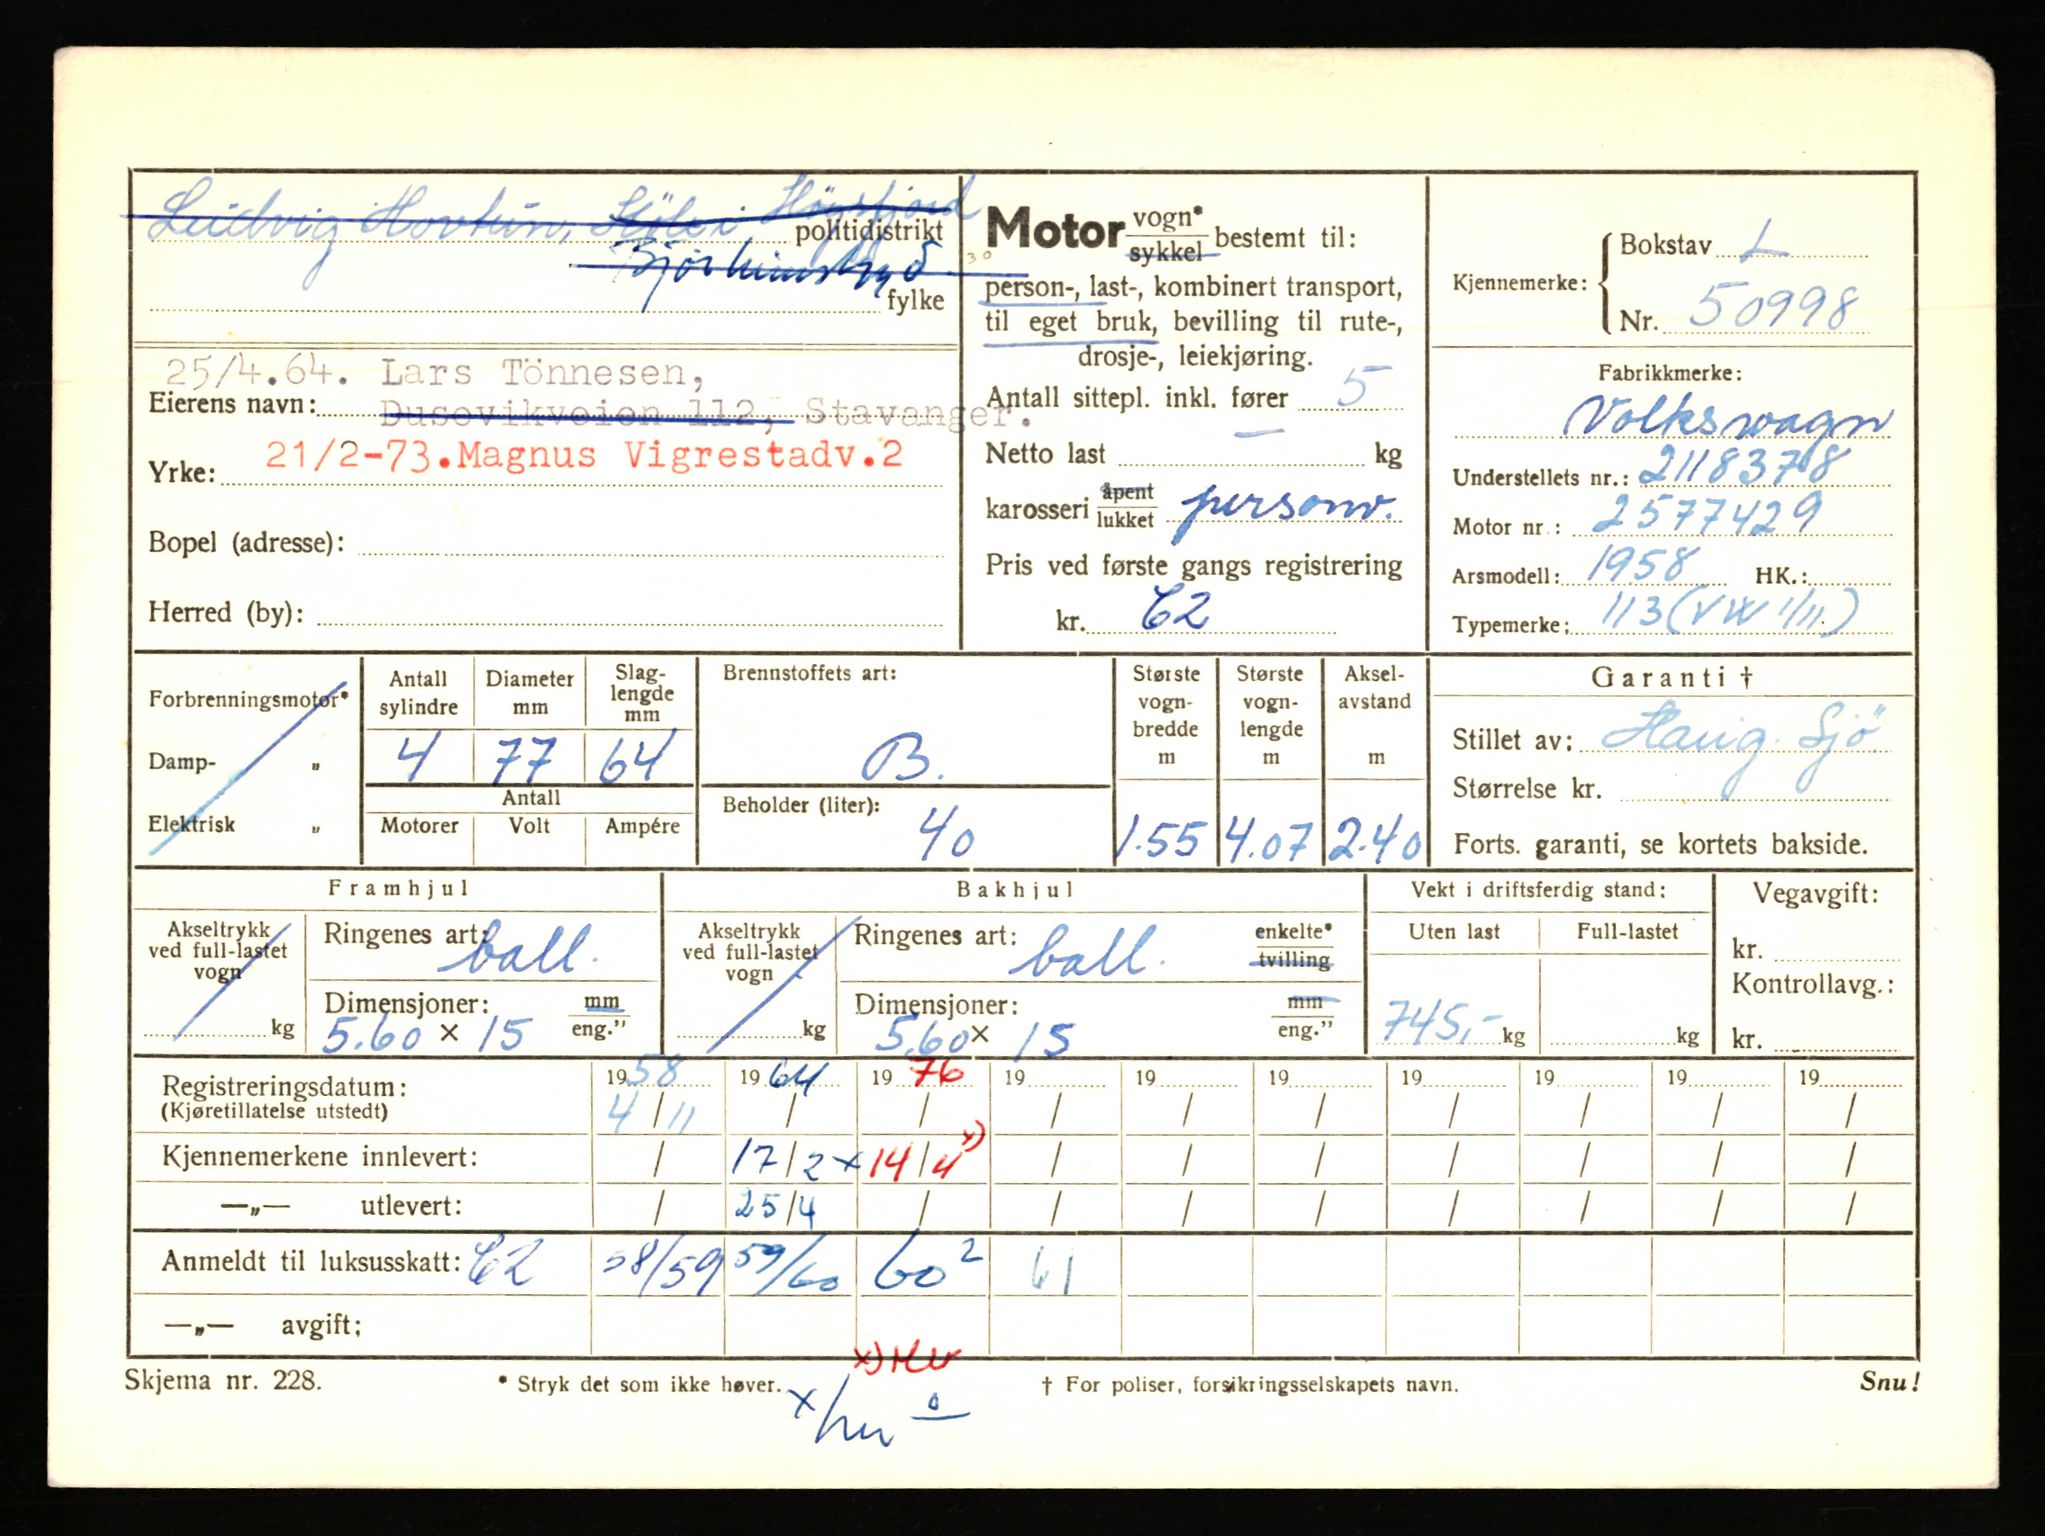 Ludvig Hovtun, Høle i Høgsfjord
politidistrikt
Bjørheimsbygd
fylke
25/4.64. Lars Tönnesen,
Eierens navn: Dusevikveien 112, Stavanger.
Yrke: 21/2-73. Magnus Vigrestadv. 2
Bopel (adresse):
Herred (by):
Motor vogn* sykkel bestemt til:
30
person-, last-, kombinert transport,
til eget bruk, bevilling til rute-,
drosje-, leiekjøring.
Antall sittepl. inkl. fører 5
Netto last — kg
karosseri åpent lukket personv.
Pris ved første gangs registrering
kr. C2
Kjennemerke: Bokstav L
Nr. 50998
Fabrikkmerke:
Volkswagn
Understellets nr.: 2118378
Motor nr.: 2577429
Arsmodell: 1958 HK.:
Typemerke: 113 (VW 1/11)
Forbrenningsmotor*
Damp- „
Elektrisk „
Antall sylindre 4
Diameter mm 77
Slag-lengde mm 64
Antall
Motorer Volt Ampére
Brennstoffets art:
B.
Beholder (liter):
40
Største vogn-bredde m 1.55
Største vogn-lengde m 4.07
Aksel-avstand m 2.40
Garanti †
Stillet av: Haug. Sjö
Størrelse kr.
Forts. garanti, se kortets bakside.
Framhjul
Akseltrykk ved full-lastet vogn kg
Ringenes art: ball.
Dimensjoner: mm eng.”
5.60 × 15
Bakhjul
Akseltrykk ved full-lastet vogn kg
Ringenes art: ball. enkelte* tvilling
Dimensjoner: mm eng.”
5.60 × 15
Vekt i driftsferdig stand:
Uten last Full-lastet
745,- kg kg
Vegavgift:
kr.
Kontrollavg.:
kr.
Registreringsdatum: 1958 1964 1976 19 19 19 19 19 19 19
(Kjøretillatelse utstedt) 4/11 / / / / / / / / /
Kjennemerkene innlevert: / 17/2 x 14/4 x) / / / / / / /
—„— utlevert: / 25/4 / / / / / / / /
Anmeldt til luksusskatt: C2 58/59 59/60 60² 61
—„— avgift:
x) Hv
Skjema nr. 228. * Stryk det som ikke høver. † For poliser, forsikringsselskapets navn. Snu!